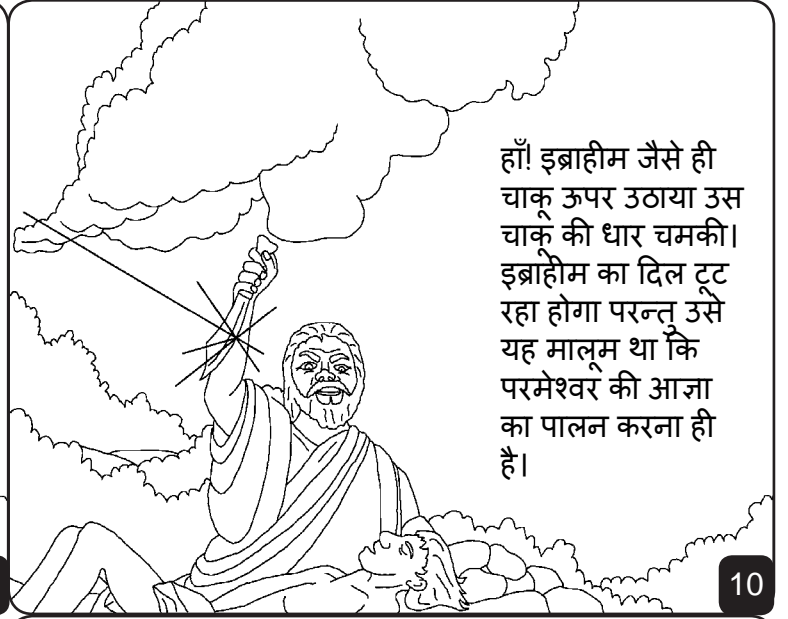 हाँ! इब्राहीम जैसे ही
चाकू ऊपर उठाया उस
चाकू की धार चमकी।
इब्राहीम का दिल टूट
रहा होगा परन्तु उसे
यह मालूम था कि
परमेश्वर की आज्ञा
का पालन करना ही
है।
10